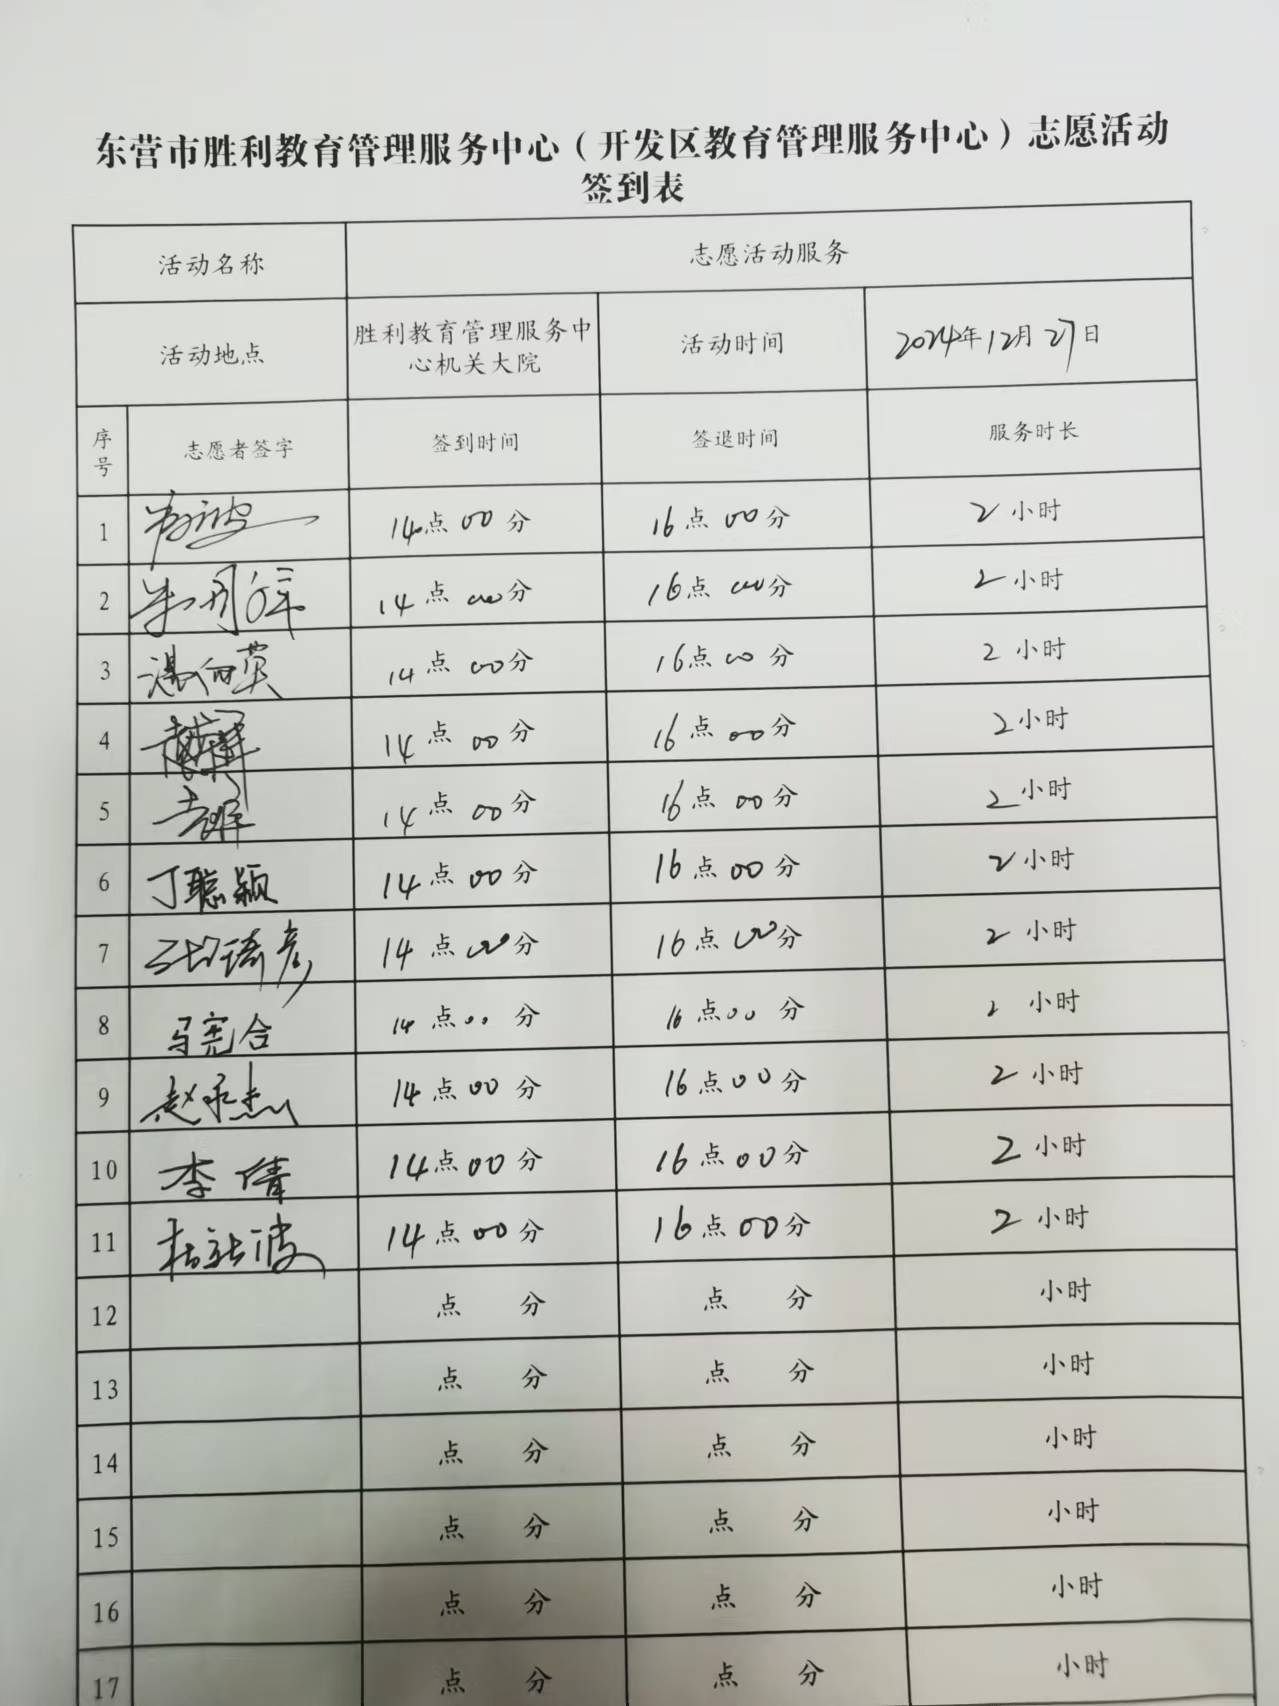 东营市胜利教育管理服务中心（开发区教育管理服务中心）志愿活动
签到表
活动名称 志愿活动服务
活动地点 胜利教育管理服务中心机关大院 活动时间 2024年12月27日
序号 志愿者签字 签到时间 签退时间 服务时长
1 14点00分 16点00分 2小时
2 14点00分 16点00分 2小时
3 温向英 14点00分 16点00分 2小时
4 14点00分 16点00分 2小时
5 14点00分 16点00分 2小时
6 丁聪颖 14点00分 16点00分 2小时
7 14点00分 16点00分 2小时
8 马宪合 14点00分 16点00分 2小时
9 14点00分 16点00分 2小时
10 李倩 14点00分 16点00分 2小时
11 14点00分 16点00分 2小时
12 点 分 点 分 小时
13 点 分 点 分 小时
14 点 分 点 分 小时
15 点 分 点 分 小时
16 点 分 点 分 小时
17 点 分 点 分 小时